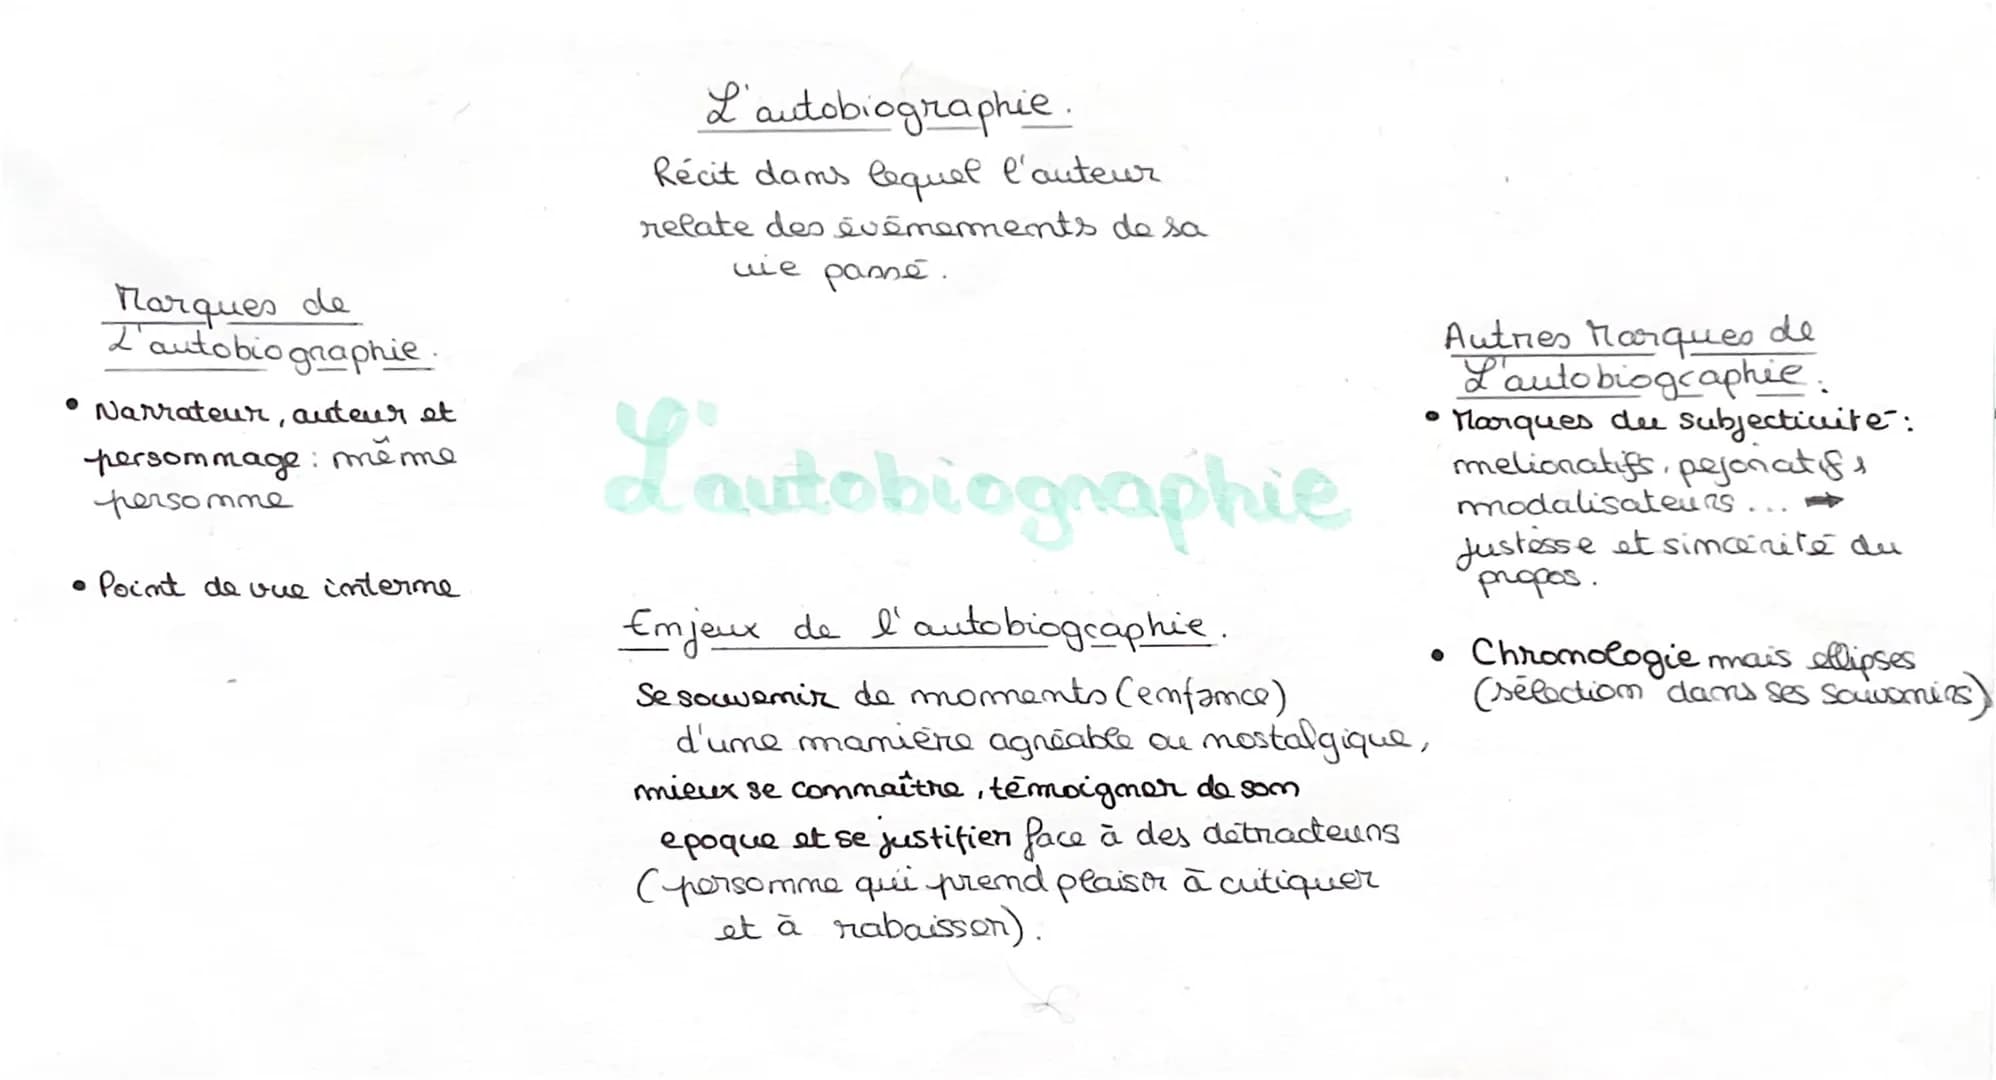 L'autobiographie.
Récit dans lequel l'auteur
relate des évènements de sa
vie passé.
Marques de
L'autobiographie.
• Narrateur, auteur et
personnage : même
personne
• Point de vue interne
L'autobiographie
Enjeux de l'autobiographie.
Se souvenir de moments (enfance)
d'une manière agréable ou nostalgique,
mieux se connaître, témoigner de son
epoque et se justifier face à des détracteurs
(personne qui prend plaisir à critiquer
et à rabaisser).
Autres Marques de
L'autobiographie.
• Marques du subjectivité :
melioratifs, pejoratifs
modalisateurs ... →
justesse et sincérité du
propos.
• Chronologie mais ellipses
(sélection dans ses souvenirs)